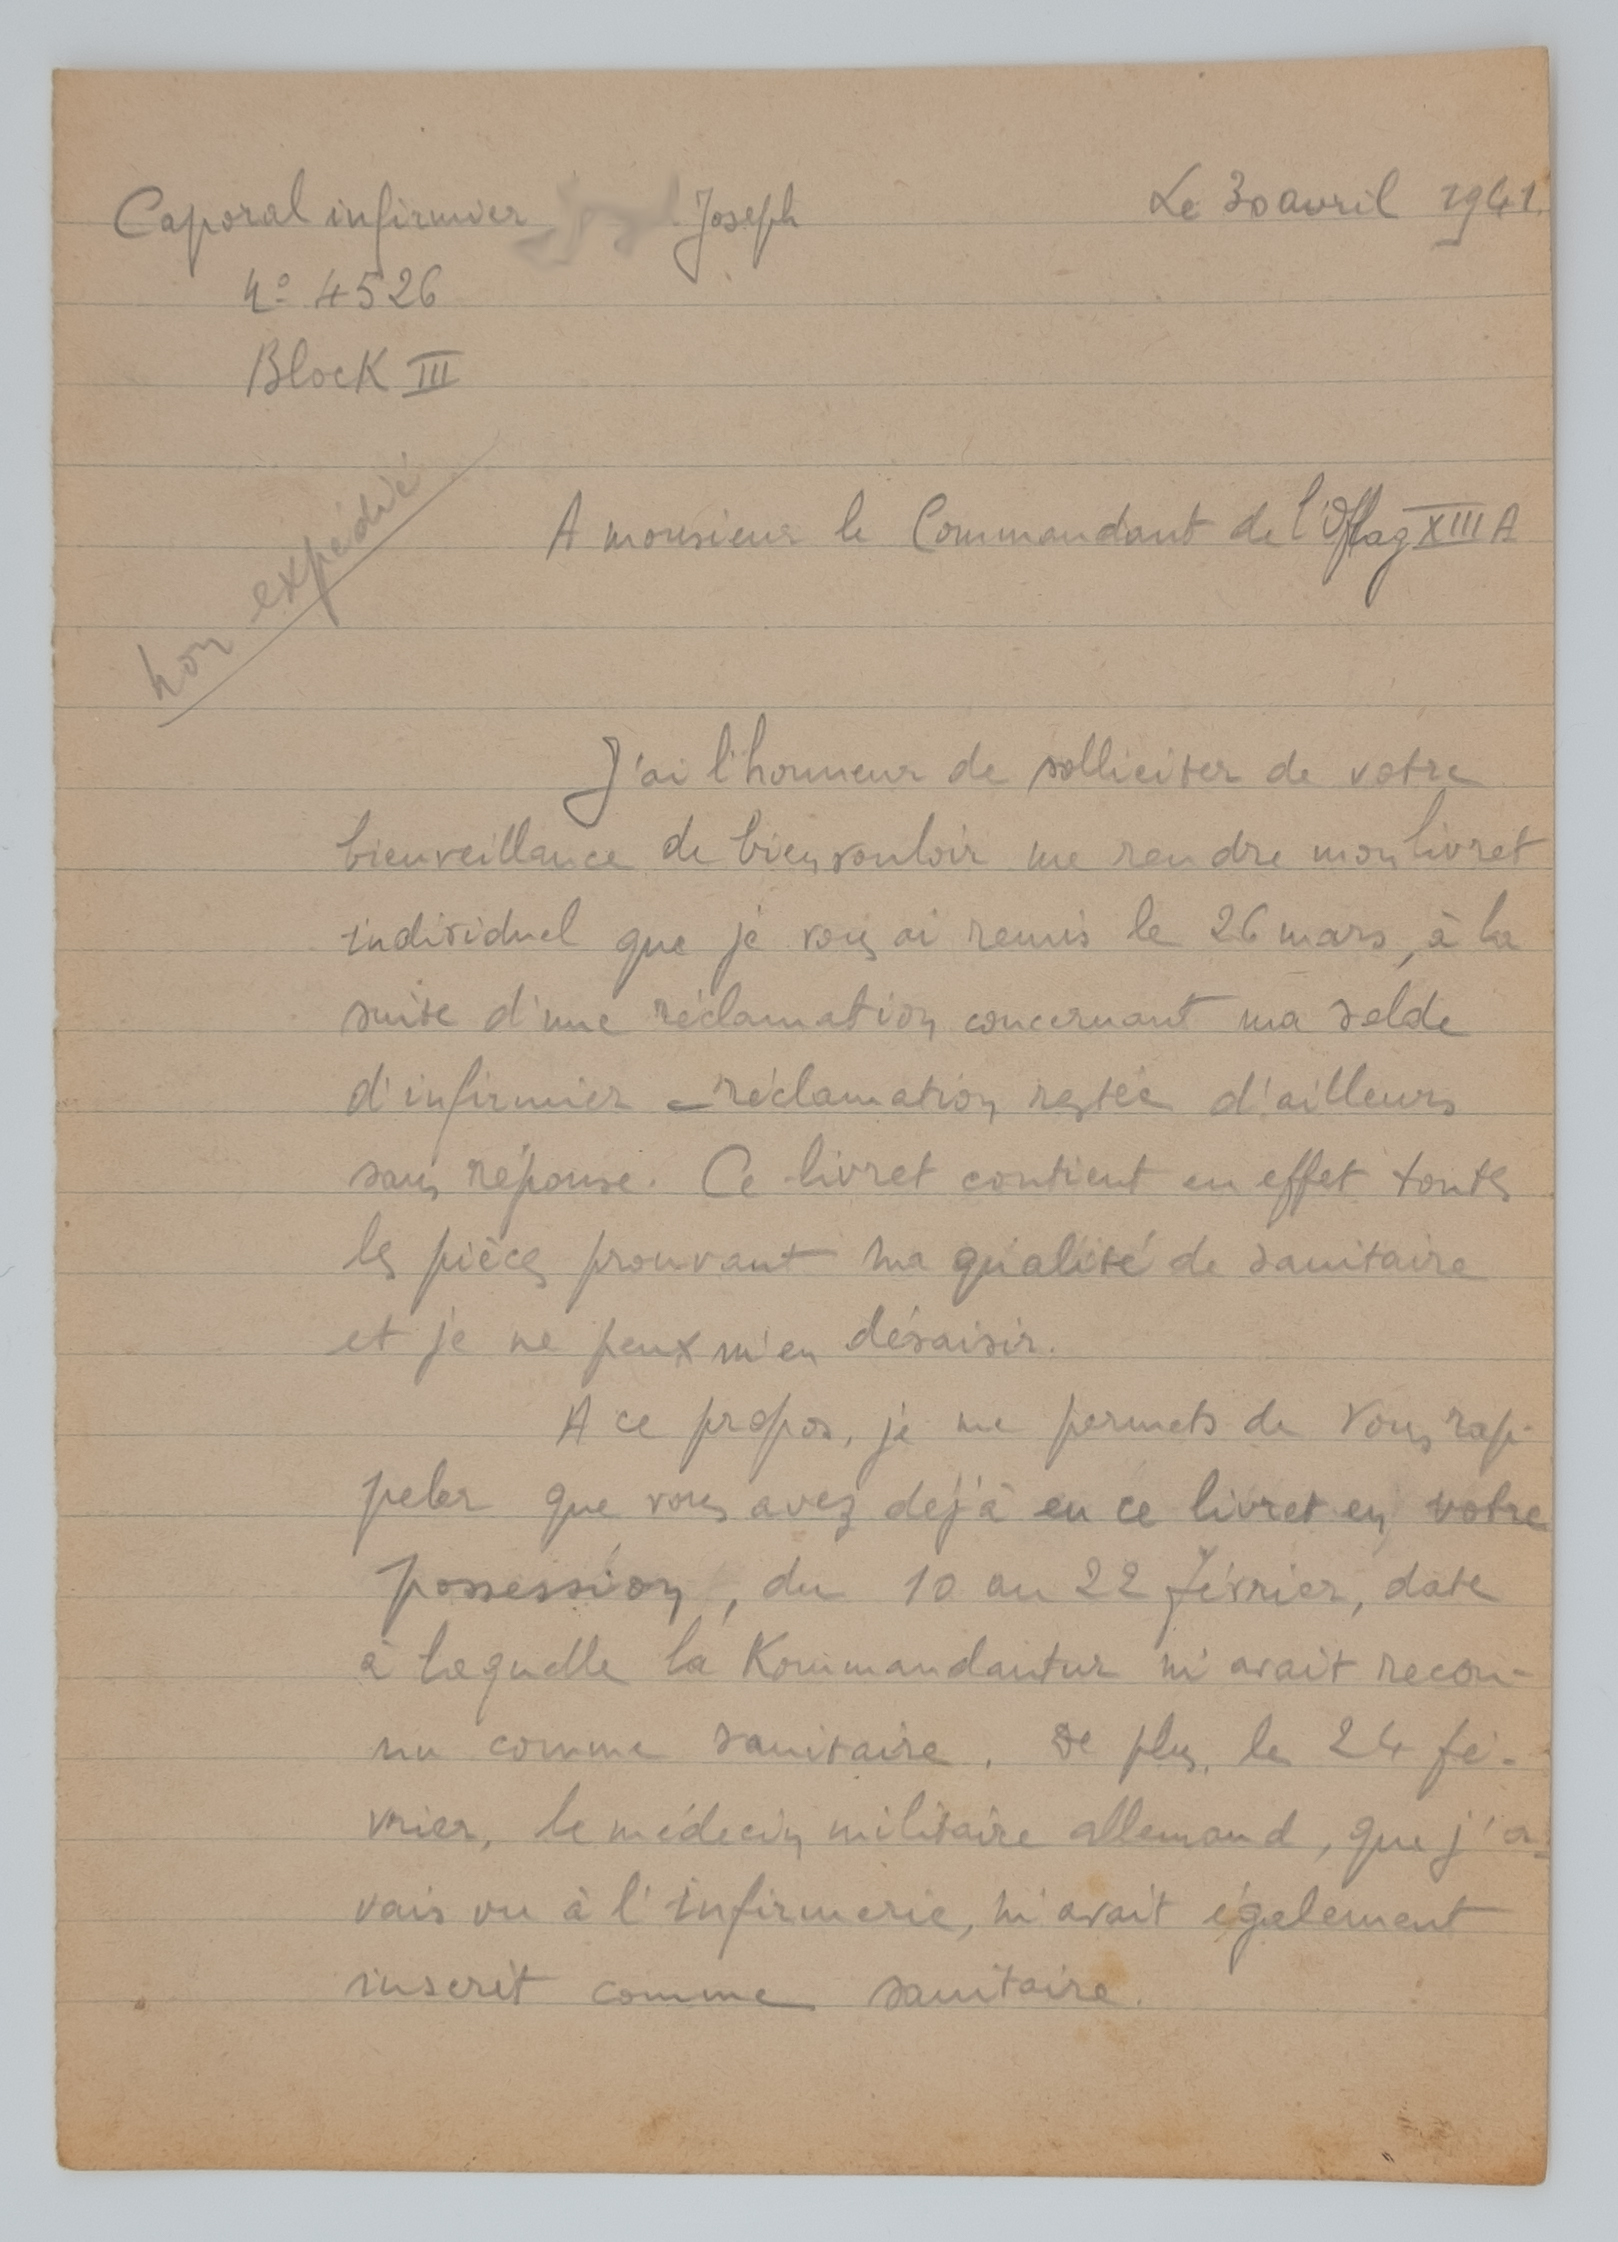 Caporal infirmier Joseph
Le 30 avril 1941.
n° 4526
Block III
non expédié
A monsieur le Commandant de l'Oflag XIII A
J'ai l'honneur de solliciter de votre
bienveillance de bien vouloir me rendre mon livret
individuel que je vous ai remis le 26 mars, à la
suite d'une réclamation concernant ma solde
d'infirmier – réclamation restée d'ailleurs
sans réponse. Ce livret contient en effet toutes
les pièces prouvant ma qualité de sanitaire
et je ne peux m'en désaisir.
A ce propos, je me permets de vous rap-
peler que vous avez déjà eu ce livret en votre
possession, du 10 au 22 février, date
à laquelle la Kommandantur m'avait recon-
nu comme sanitaire. De plus, le 24 fé-
vrier, le médecin militaire allemand, que j'a-
vais vu à l'infirmerie, m'avait également
inscrit comme sanitaire.